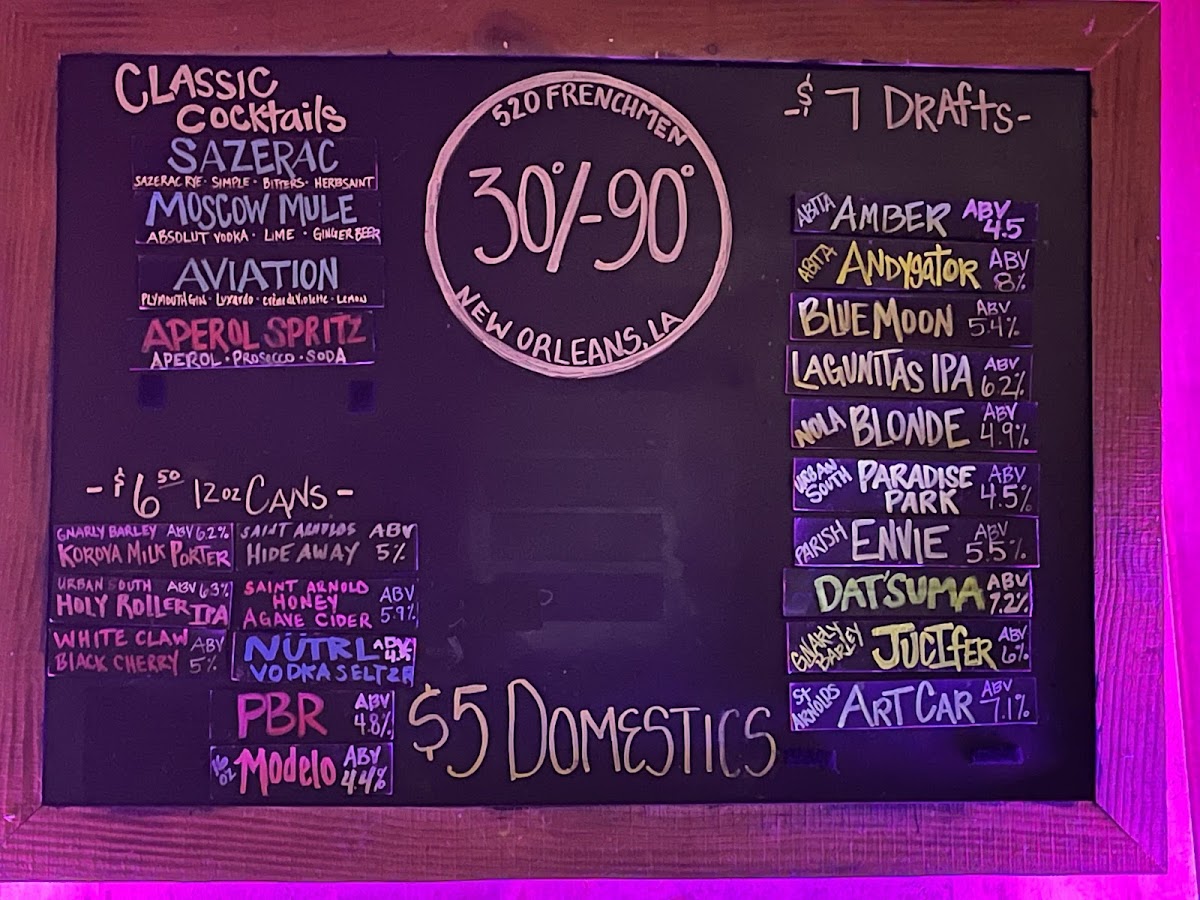 CLASSIC
COCKTAILS
SAZERAC
SAZERAC RYE · SIMPLE · BITTERS · HERBSAINT
MOSCOW MULE
ABSOLUT VODKA · LIME · GINGER BEER
AVIATION
PLYMOUTH GIN · Luxardo · crème de Violette · LEMON
APEROL SPRITZ
APEROL · PROSECCO · SODA
520 FRENCHMEN
30°/-90°
NEW ORLEANS, LA
-$7 DRAFTS-
ABITA AMBER ABV 4.5
ABITA ANDYgATOR ABV 8%
BLUE MOON ABV 5.4%
LAGUNITAS IPA ABV 6.2%
NOLA BLONDE ABV 4.9%
URBAN SOUTH PARADISE PARK ABV 4.5%
PARISH ENVIE ABV 5.5%
DAT'SUMA ABV 7.2%
GNARLY BARLEY JUCIfER ABV 6%
ST ARNOLDS ART CAR ABV 7.1%
-$6.50 12oz CANS-
GNARLY BARLEY ABV 6.2%
KOROVA MILK PORTER
SAINT ARNOLDS ABV
HIDE AWAY 5%
URBAN SOUTH ABV 6.3%
HOLY ROLLER IPA
SAINT ARNOLD
HONEY ABV
AGAVE CIDER 5.9%
WHITE CLAW ABV
BLACK CHERRY 5%
NÜTRL
VODKA SELTZR
PBR ABV 4.8%
16 OZ Modelo ABV 4.4%
$5 DOMESTICS